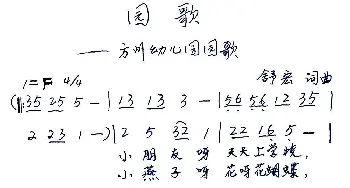 园歌
——方叶幼儿园园歌
1=F 4/4 舒宏 词曲
(35 25 5 - | 13 13 3 - | 56 56 12 35 |
2 23 1 -) | 2 5 32 1 | 22 16 5 - |
小朋友呀 天天上学校,
小燕子呀 花呀花蝴蝶,